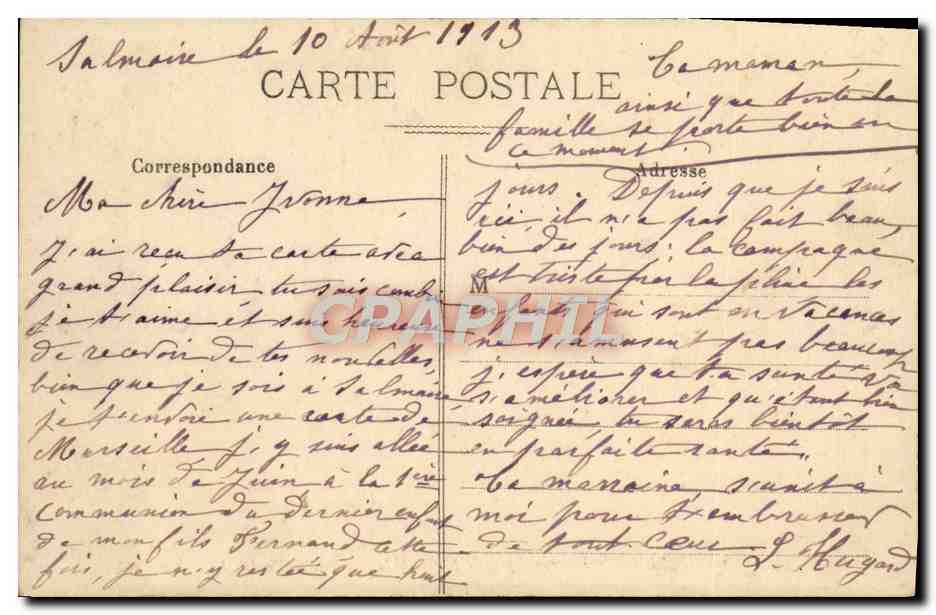 Salmaire le 10 Août 1913
CARTE POSTALE
Ta maman,
ainsi que toute la
famille se porte bien en
ce moment.
Correspondance
Adresse
Ma chère Yvonne,
J'ai reçu ta carte avec
grand plaisir tu sais comb.
je t'aime et suis heureuse
de recevoir de tes nouvelles,
bien que je sois à Salmaire,
je t'envoie une carte de
Marseille j'y suis allée
au mois de Juin à la 1ère
communion du dernier enfant
de mon fils Fernand cette
fois, je n'y restée que huit
jours. Depuis que je suis
ici, il n'a pas fait beau,
bien des jours; la campagne
M
est triste par la pluie les
enfants qui sont en vacances
ne s'amusent pas beaucoup
j'espère que ta santé va
s'améliorer et qu'étant bien
soignée, tu seras bientôt
en parfaite santé.
Ta marraine s'unit à
moi pour t'embrasser
de tout cœur
L. Hugard
CPAPHIL